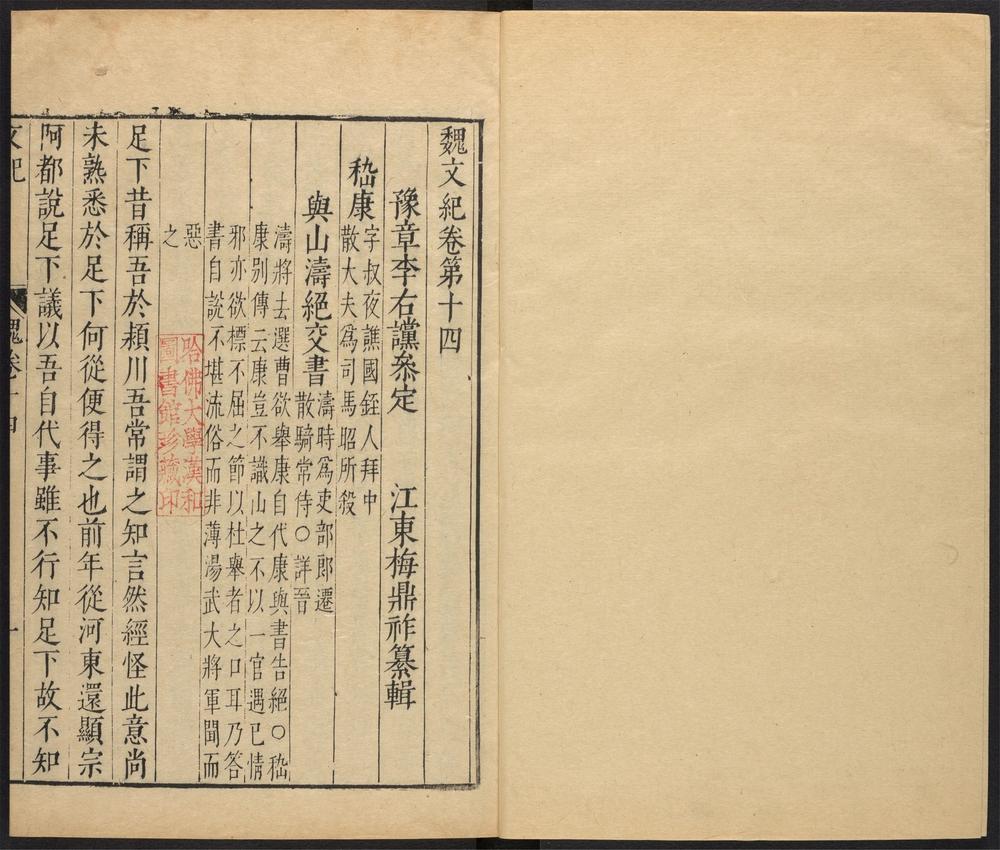 魏文紀卷第十四
豫章李右讜叅定 江東梅鼎祚纂輯
嵇康
字叔夜譙國銍人拜中
散大夫爲司馬昭所殺
與山濤絕交書
濤時爲吏部郎遷
散騎常侍○詳晉
濤將去選曹欲舉康自代康與書告絕○嵇
康別傳云康豈不識山之不以一官遇已情
邪亦欲標不屈之節以杜舉者之口耳乃答
書自說不堪流俗而非薄湯武大將軍聞而
惡
之
哈佛大學漢和
圖書館珍藏印
足下昔稱吾於潁川吾常謂之知言然經怪此意尚
未熟悉於足下何從便得之也前年從河東還顯宗
阿都說足下議以吾自代事雖不行知足下故不知
文紀 魏卷十四 一